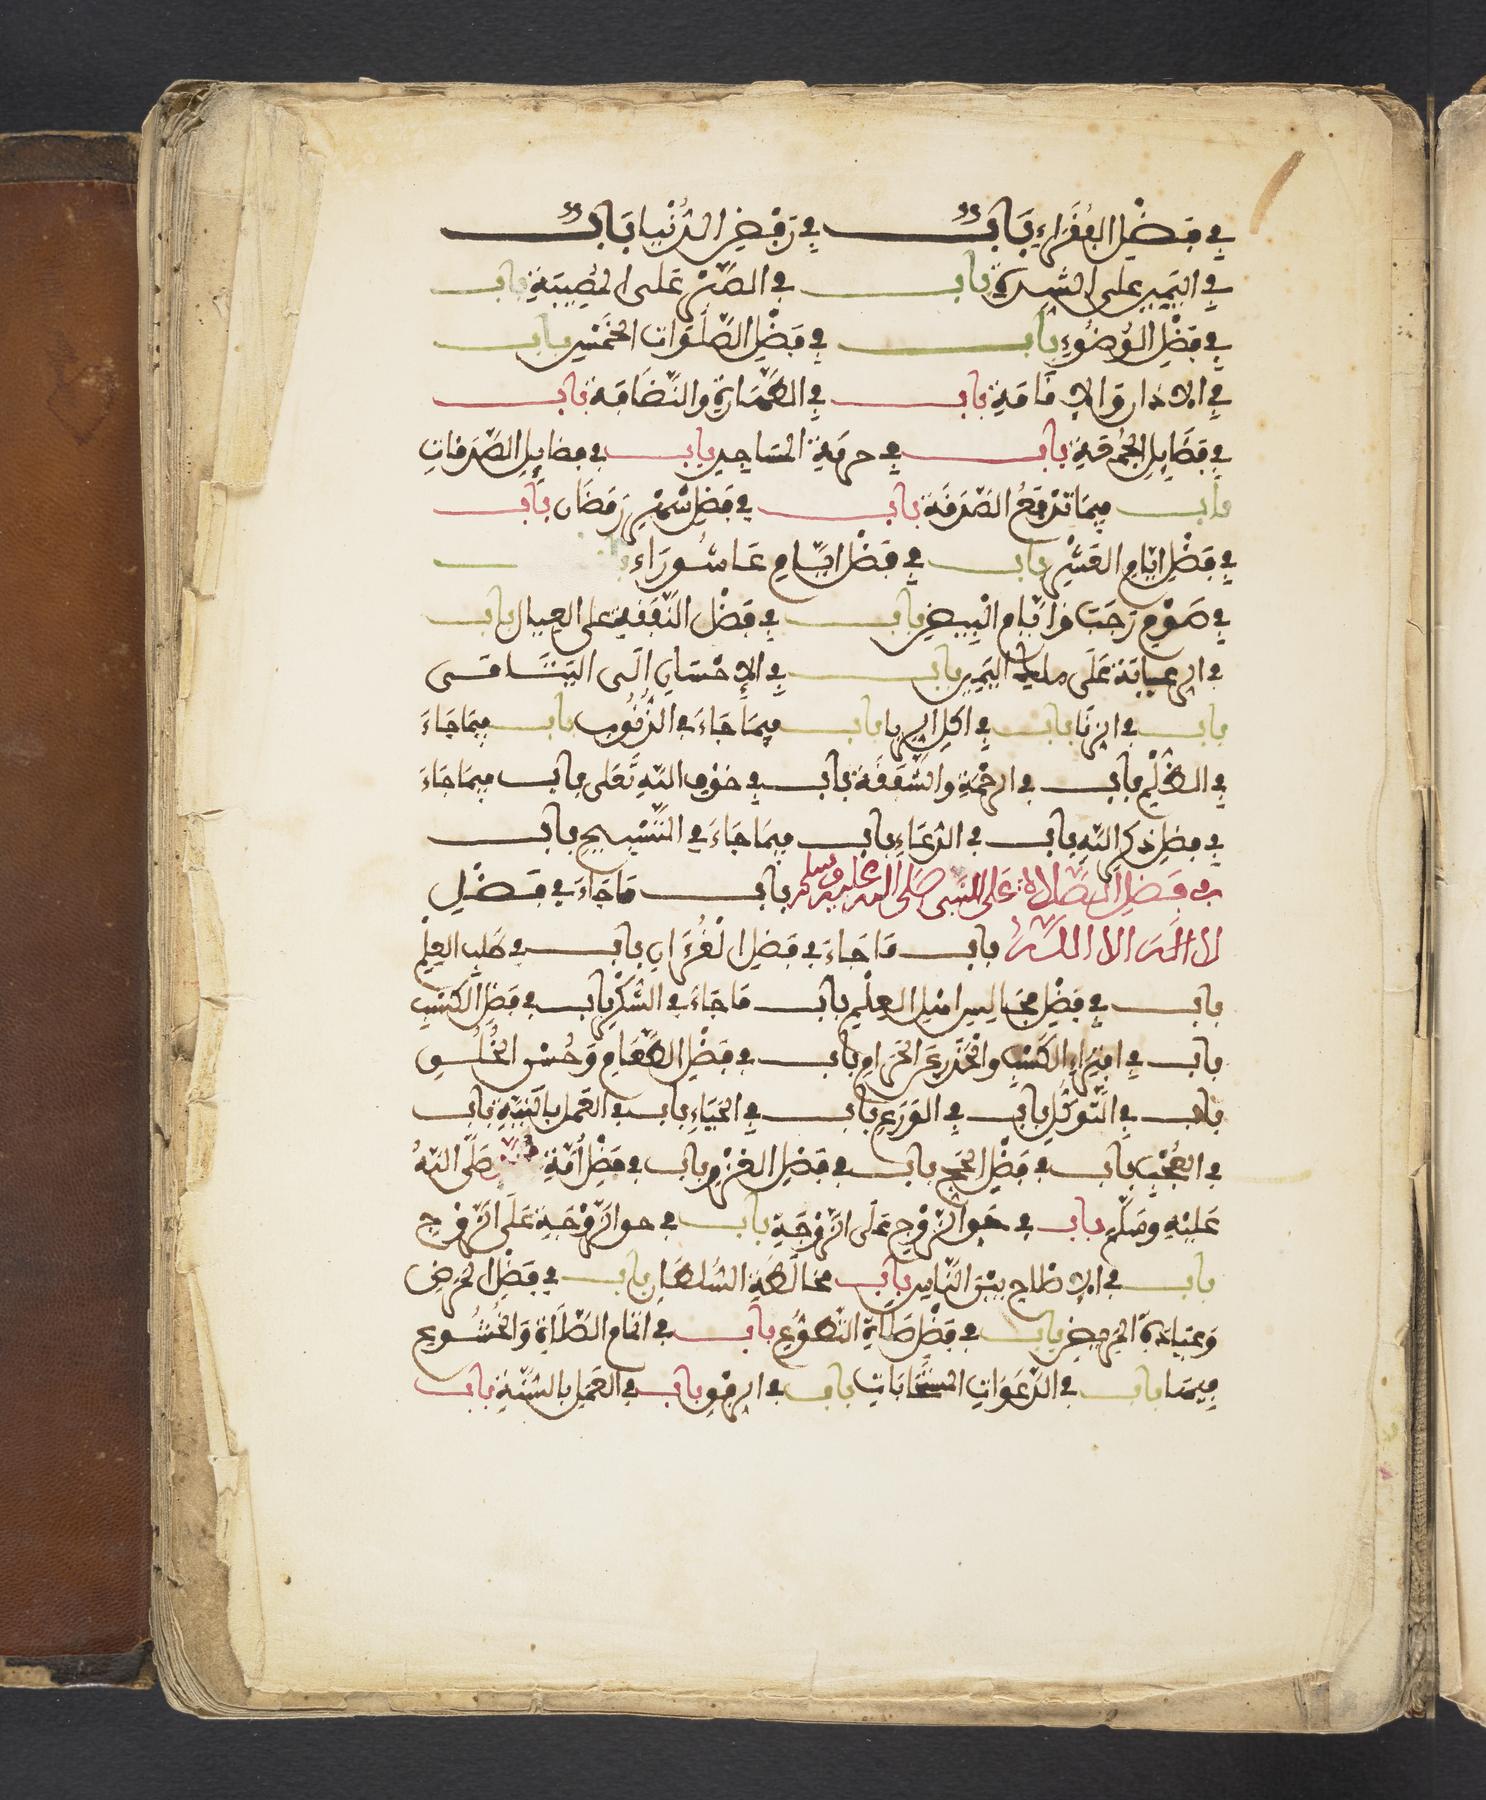 في فضل الفقراء باب في رفض الدنيا باب
في الصبر على الشدة باب في الصبر على المصيبة باب
في فضل الوضوء باب في فضل الصلوات الخمس باب
في الاذان والاقامة باب في الطهارة والنضافة باب
في فضايل الجمعة باب في حرمة المساجد باب في فضايل الصدقات
باب فيما تدفع الصدقة باب في فضل شهر رمضان باب
في فضل ايام العشر باب في فضل ايام عاشوراء باب
في صوم رجب وايام البيض باب في فضل النفقة على العيال باب
في الرعاية على ملك اليمين باب في الاحسان الى اليتامى
باب في الزنا باب في اكل الربا باب فيما جاء في الذنوب باب فيما جاء
في الظلم باب في الرحمة والشفقة باب في خوف الله تعلى باب فيما جاء
في فضل ذكر الله باب في الدعاء باب فيما جاء في التسبيح باب
في فضل الصلاة على النبى صلى الله عليه وسلم باب ما جاء في فضل
لا اله الا الله باب ما جاء في فضل القرءان باب في طلب العلم
باب في فضل مجالس اهل العلم باب ما جاء في الشكر باب في فضل الكسب
باب في افتراء الكسب والحذر عن الحرام باب في فضل الطعام وحسن الخلق
باب في التوكل باب في الورع باب في الحياء باب في العمل بالنية باب
في العجب باب في فضل الحج باب في فضل الغزو باب في فضل امة صلى الله
عليه وسلم باب في حق الزوج على الزوجة باب في حق الزوجة على الزوج
باب في الاصلاح بين الناس باب مخالطة السلطان باب في فضل المرض
وعيادة المريض باب في فضل صلاة التطوع باب في اتمام الصلاة والخشوع
فيها باب في الدعوات المستجابات باب في الرفق باب في العمل بالسنة باب